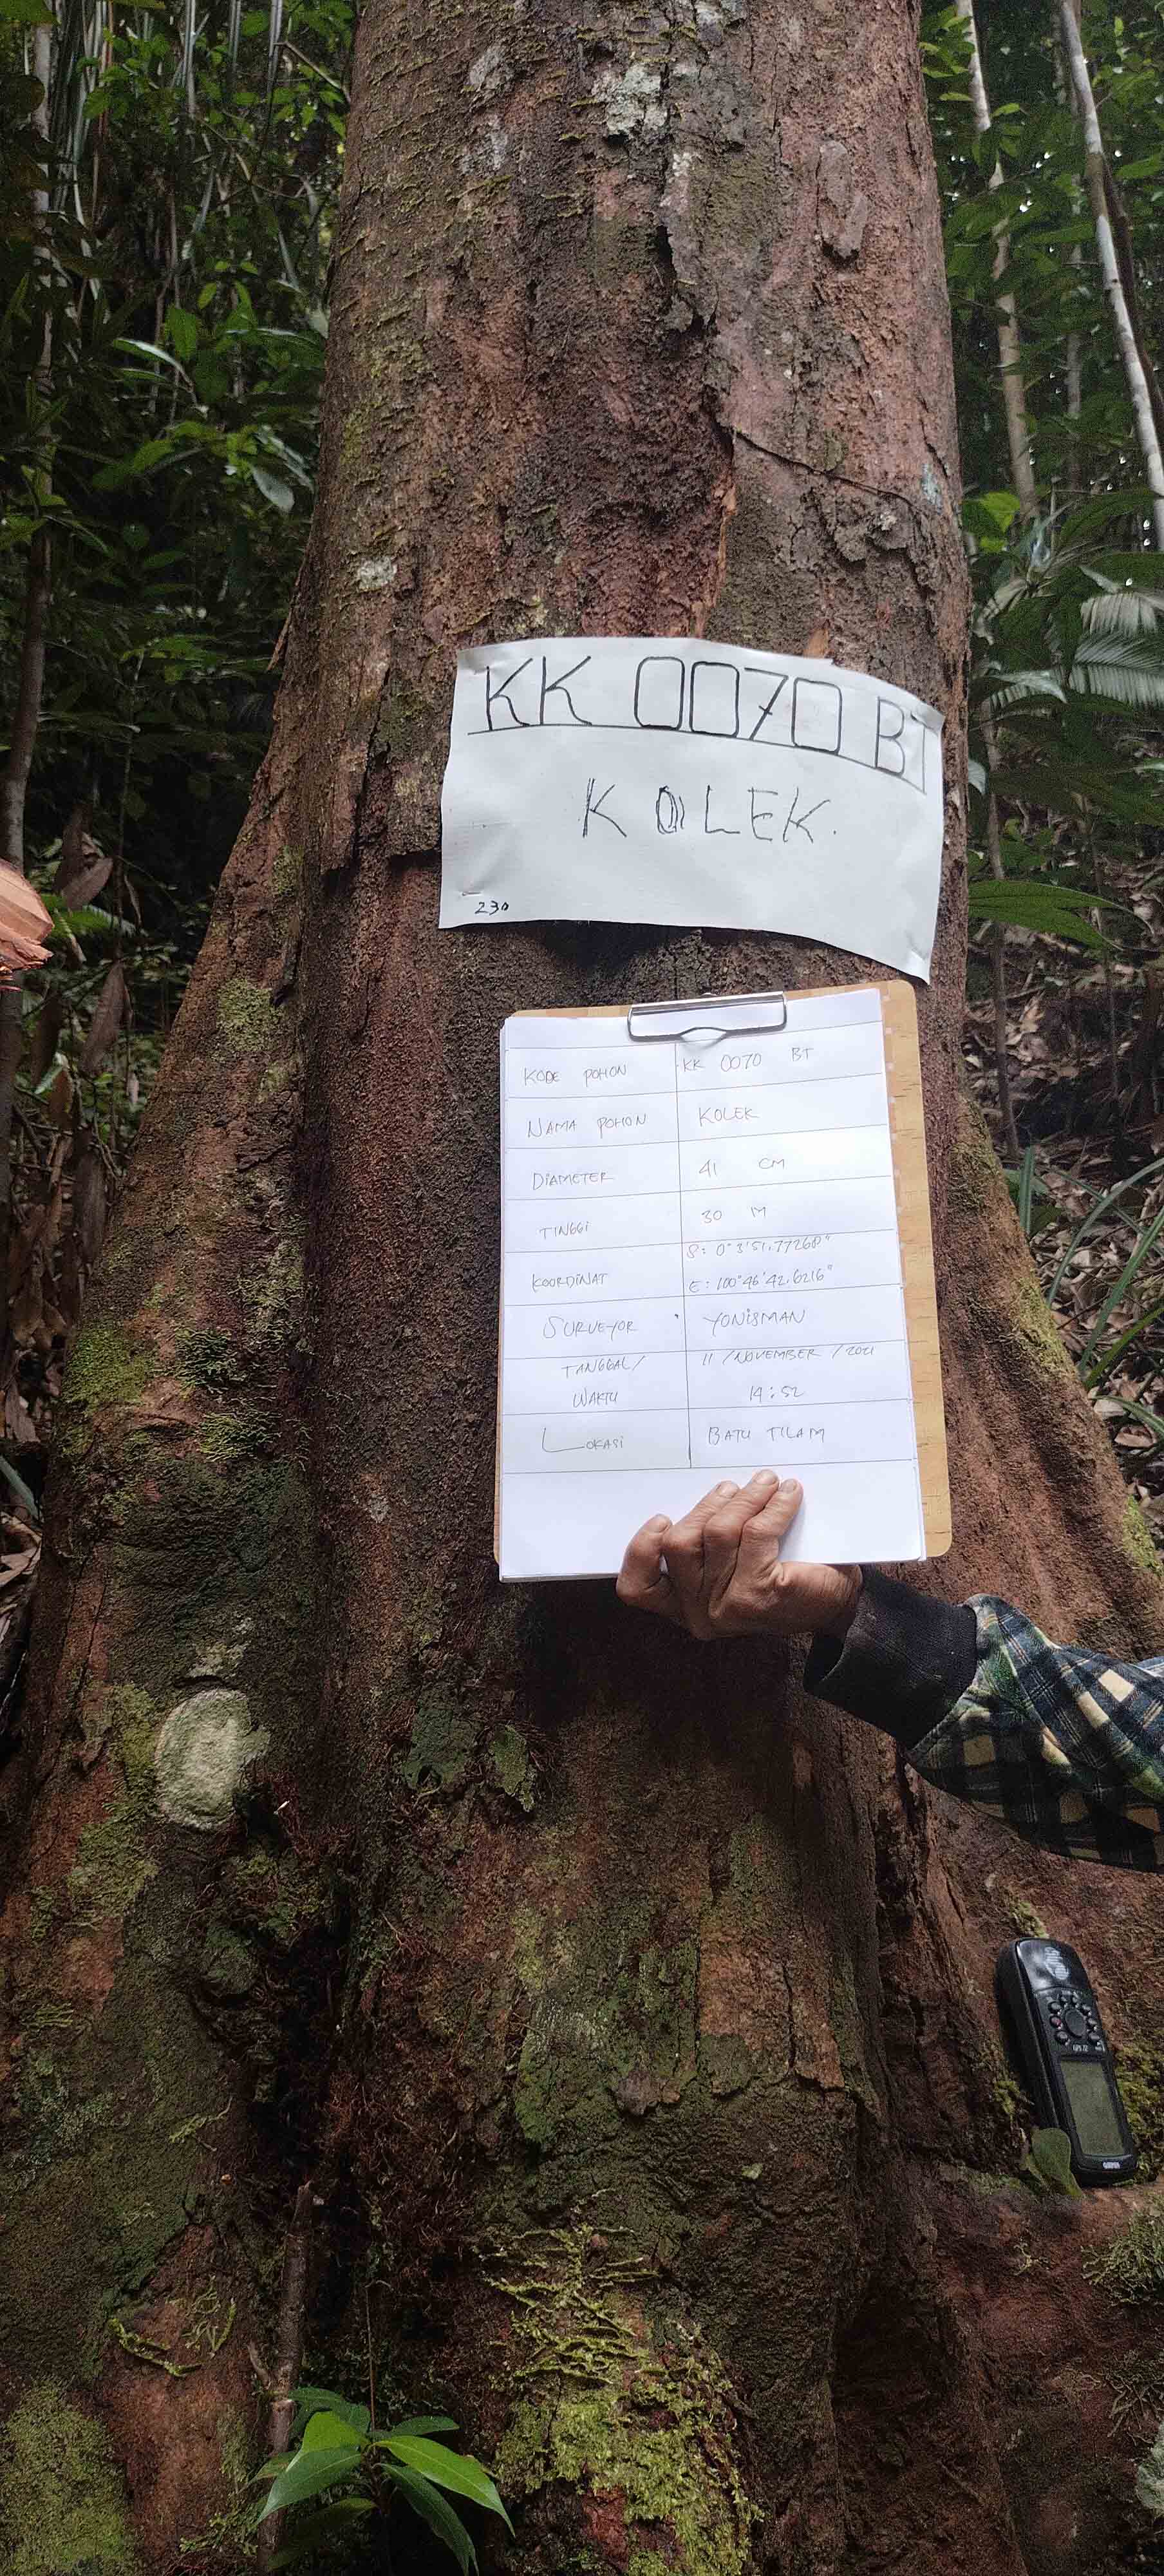 KK 0070 BT
KOLEK.
230
KODE POHON KK 0070 BT
NAMA POHON KOLEK
DIAMETER 41 CM
TINGGI 30 M
KOORDINAT S: 0°3'51,77268"
E: 100°46'42,6216"
SURVEYOR YONISMAN
TANGGAL/ 11 /NOVEMBER /2021
WAKTU 14:52
LOKASI BATU TILAM
GARMIN